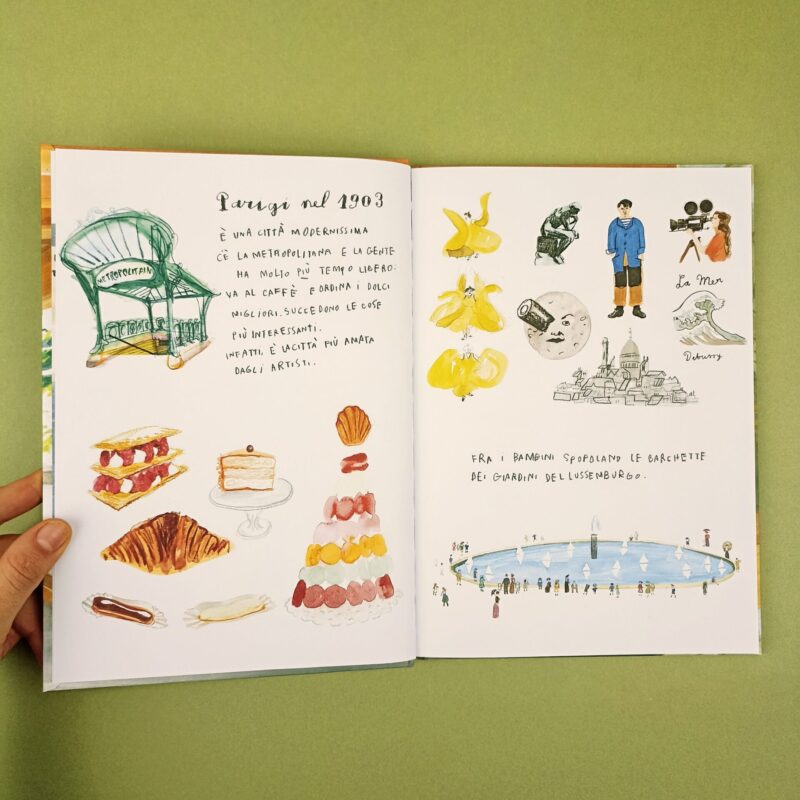 Parigi nel 1903
È UNA CITTÀ MODERNISSIMA
C'È LA METROPOLITANA E LA GENTE
HA MOLTO PIÙ TEMPO LIBERO:
VA AL CAFFÈ E ORDINA I DOLCI
MIGLIORI. SUCCEDONO LE COSE
PIÙ INTERESSANTI.
INFATTI, È LA CITTÀ PIÙ AMATA
DAGLI ARTISTI.
METROPOLITAIN
La Mer
Debussy
FRA I BAMBINI SPOPOLANO LE BARCHETTE
DEI GIARDINI DEL LUSSENBURGO.